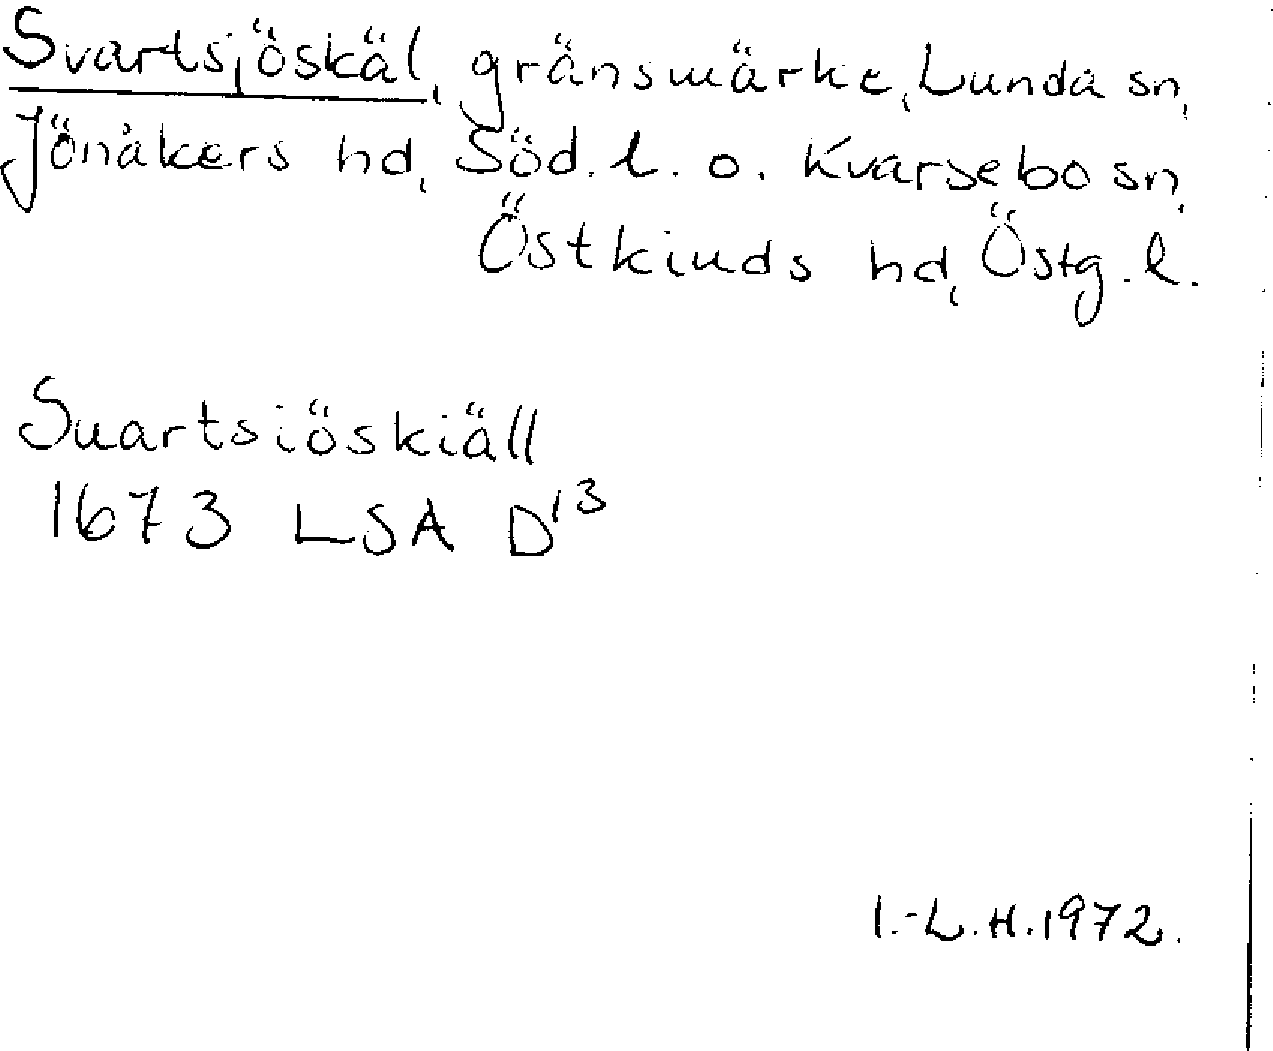 Svartsjöskäl, gränsmärke, Lunda sn,
Jönåkers hd, Söd. l. o. Kvarsebo sn,
Östkinds hd, Östg. l.
Suartsiöskiäll
1673 LSA D¹³
I.-L.H. 1972.